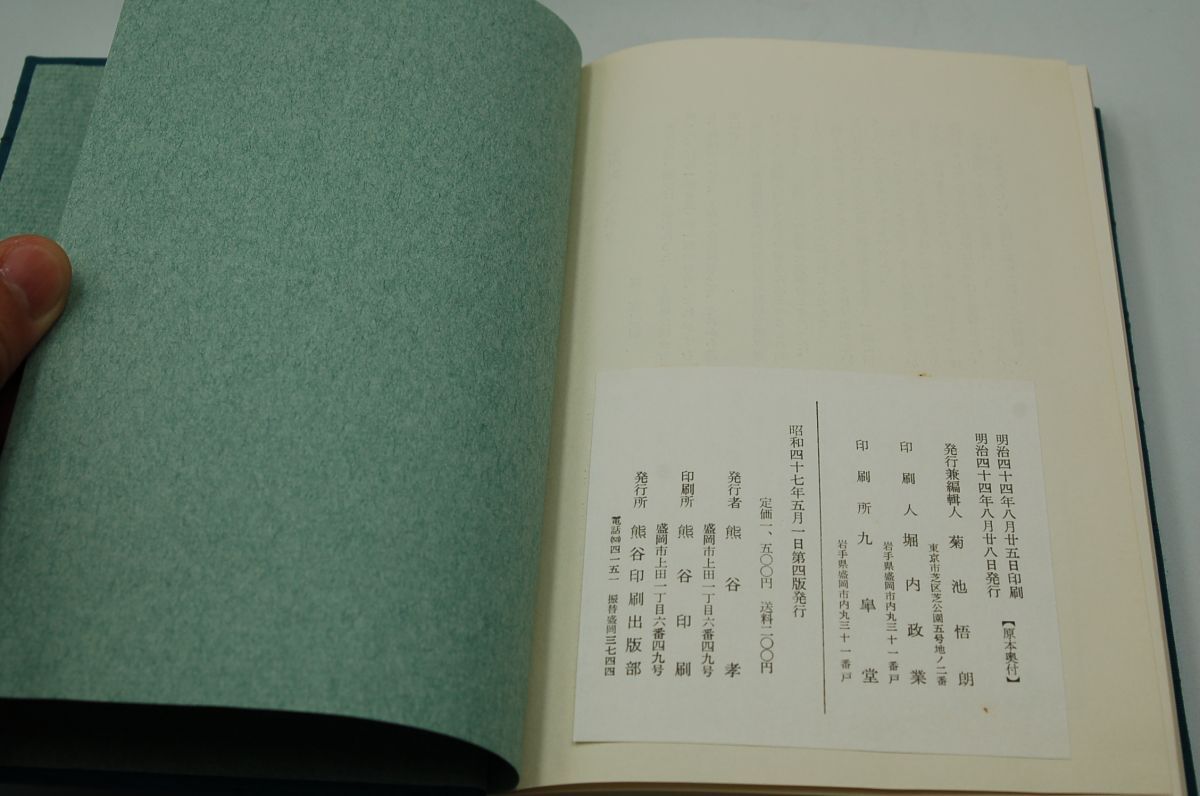 明治四十四年八月廿五日印刷
【原本奥付】
明治四十四年八月廿八日発行
発行兼編輯人 菊池悟朗
東京市芝区芝公園五号地ノ二番
印刷人 堀内政業
岩手県盛岡市内丸三十一番戸
印刷所 九皐堂
岩手県盛岡市内丸三十一番戸
昭和四十七年五月一日第四版発行
定価一、五〇〇円 送料二〇〇円
発行者 熊谷孝
盛岡市上田一丁目六番四九号
印刷所 熊谷印刷
盛岡市上田一丁目六番四九号
発行所 熊谷印刷出版部
電話四一五一 振替盛岡三七四四